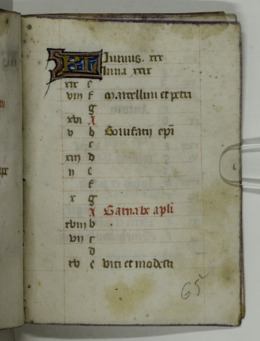 KL Iunius. xxx
luna xxix
xix e
viii f Marcellini et petri
g
xvi A
v b Bonifacii epi
c
xiii d
ii e
f
x g
A Barnabe apli
xviii b
vii c
d
xv e Viti et modesti
65